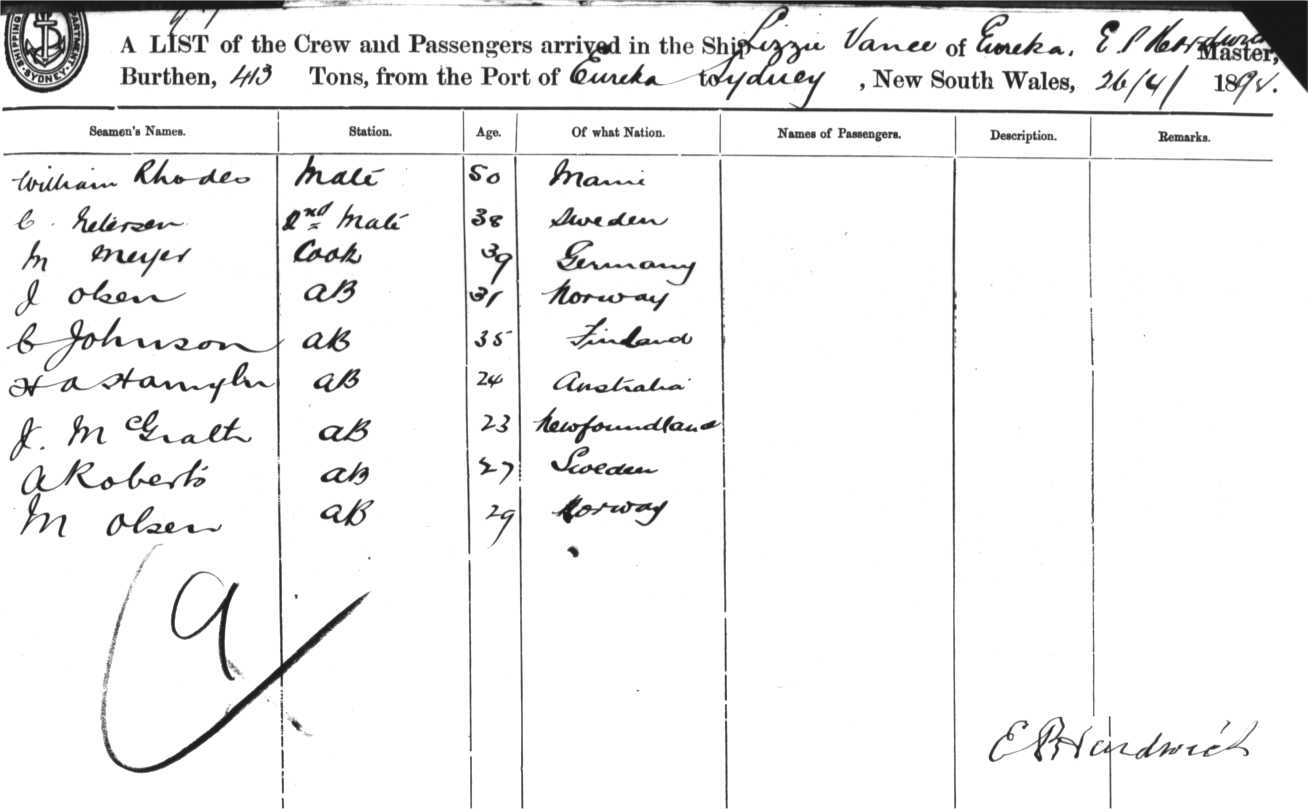 SHIPPING DEPARTMENT SYDNEY
A LIST of the Crew and Passengers arrived in the Ship Lizzie Vance of Eureka, E P Hardwick Master,
Burthen, 413 Tons, from the Port of Eureka to Sydney, New South Wales, 26/4/ 1898.
Seamen's Names. Station. Age. Of what Nation. Names of Passengers. Description. Remarks.
William Rhodes Mate 50 Maine
C. Petersen 2nd Mate 38 Sweden
M Meyer Cook 39 Germany
J Olsen AB 31 Norway
C Johnson AB 35 Finland
H A AB 24 Australia
J. McGrath AB 23 Newfoundland
A Roberts AB 27 Sweden
M Olsen AB 29 Norway
9
E P Hardwick